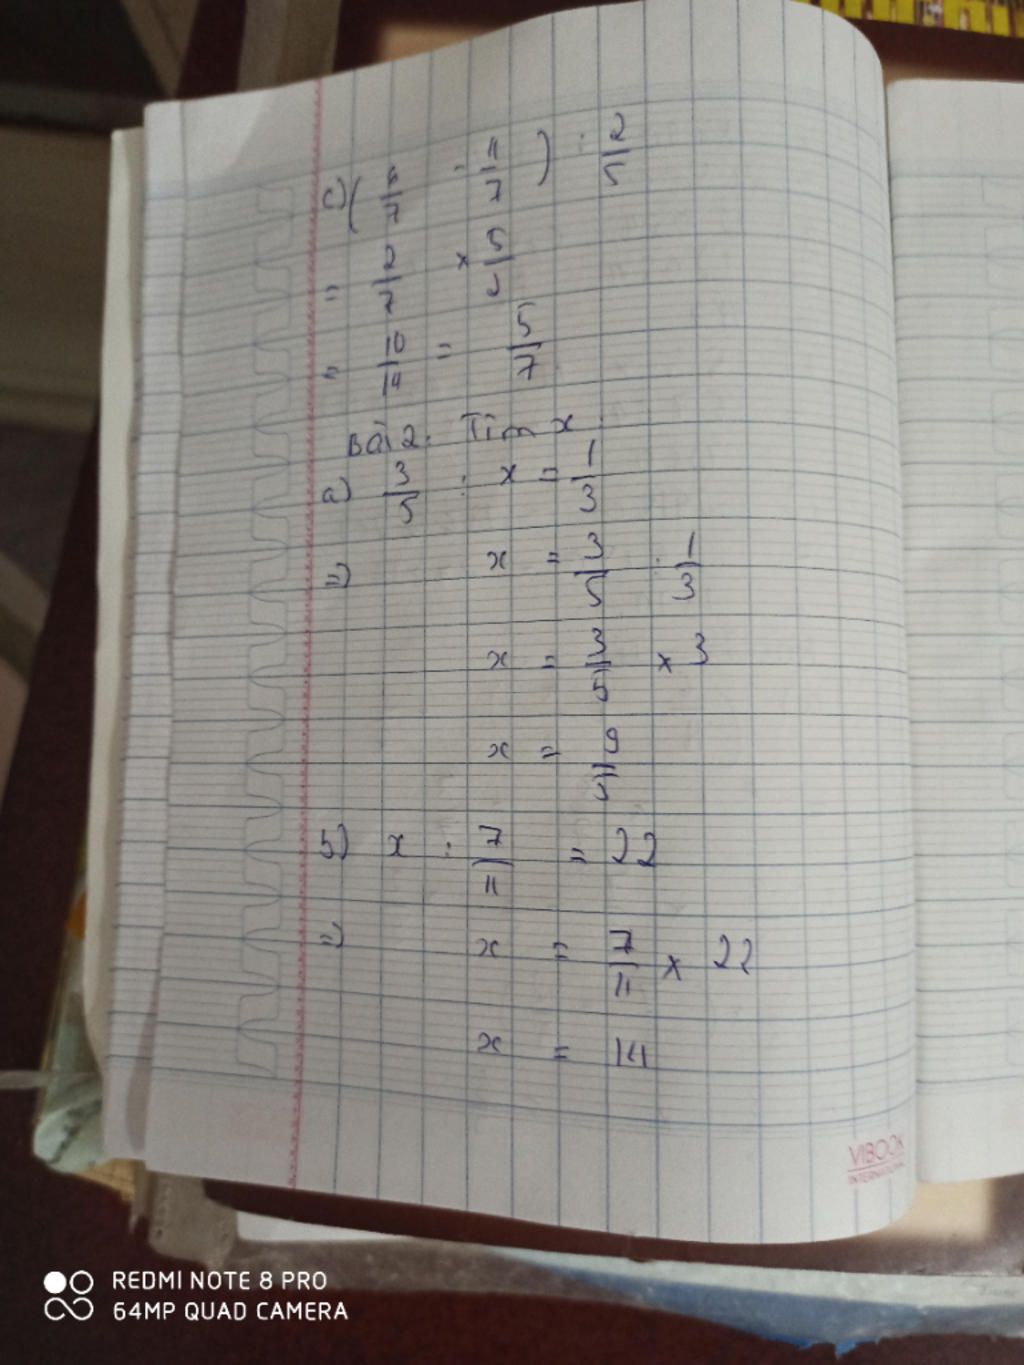 c) (6/7 - 4/7) : 2/5
= 2/7 × 5/2
= 10/14 = 5/7
Bài 2: Tìm x:
a) 3/5 : x = 1/3
=) x = 3/5 : 1/3
x = 3/5 × 3
x = 9/5
b) x : 7/11 = 22
=) x = 7/11 × 22
x = 14
VIBOOK
INTERNATIONAL
REDMI NOTE 8 PRO
64MP QUAD CAMERA